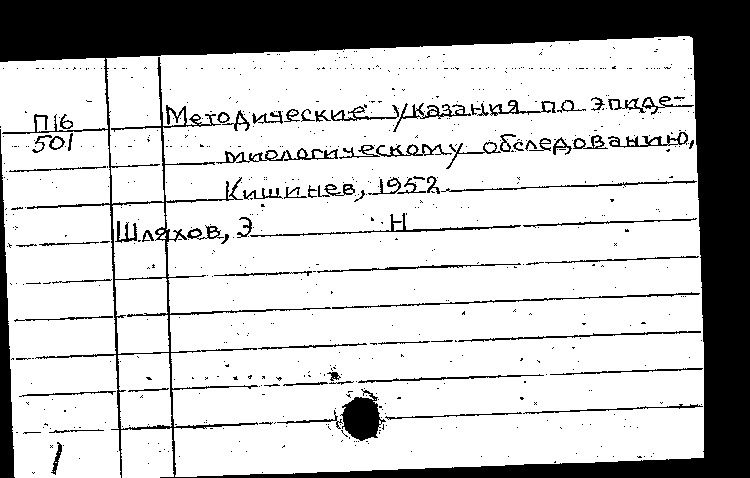 П16
501
Методические указания по эпиде-
миологическому обследованию,
Кишинев, 1952
Шляхов, Э Н
1